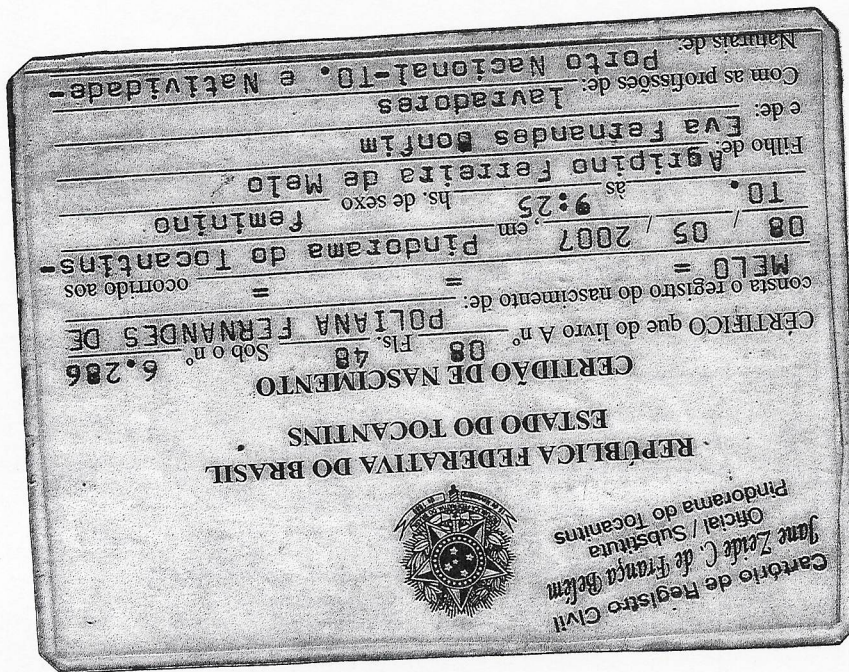 Cartório de Registro Civil
Jane Zeide C. de França Belém
Oficial / Substituta
Pindorama do Tocanitns
REPÚBLICA FEDERATIVA DO BRASIL
ESTADO DO TOCANTINS
CERTIDÃO DE NASCIMENTO
CERTIFICO que do livro A nº 08 Fls. 48 Sob o nº 6.286
consta o registro do nascimento de: POLIANA FERNANDES DE
MELO = = = ocorrido aos
08 / 05 / 2007, em Pindorama do Tocantins-
TO. às 9:25 hs. de sexo feminino
Filho de: Agripino Ferreira de Melo
e de: Eva Fernandes Bonfim
Com as profissões de: lavradores
Naturais de: Porto Nacional-TO. e Natividade-